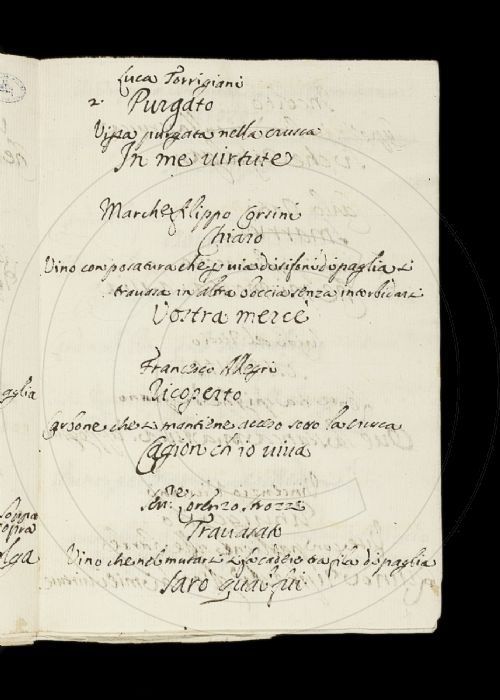 Luca Torrigiani
2. Purgato
Vipa purgata nella crusca
In me virtute
Marche Filippo Corsini
Chiaro
Vino con posatura che p via di sifoni di paglia si
travasa in altra boccia senza intorbidarsi
Vostra mercè
Francesco Allegri
Ricoperto
Carbone che si mantiene acceso sotto la crusca
Cagion ch io viva
Sen: Lorenzo Strozzi
Travasato
Vino che nel mutarsi si fa cadere tra fila di paglia
Sarò qual fui
aglia